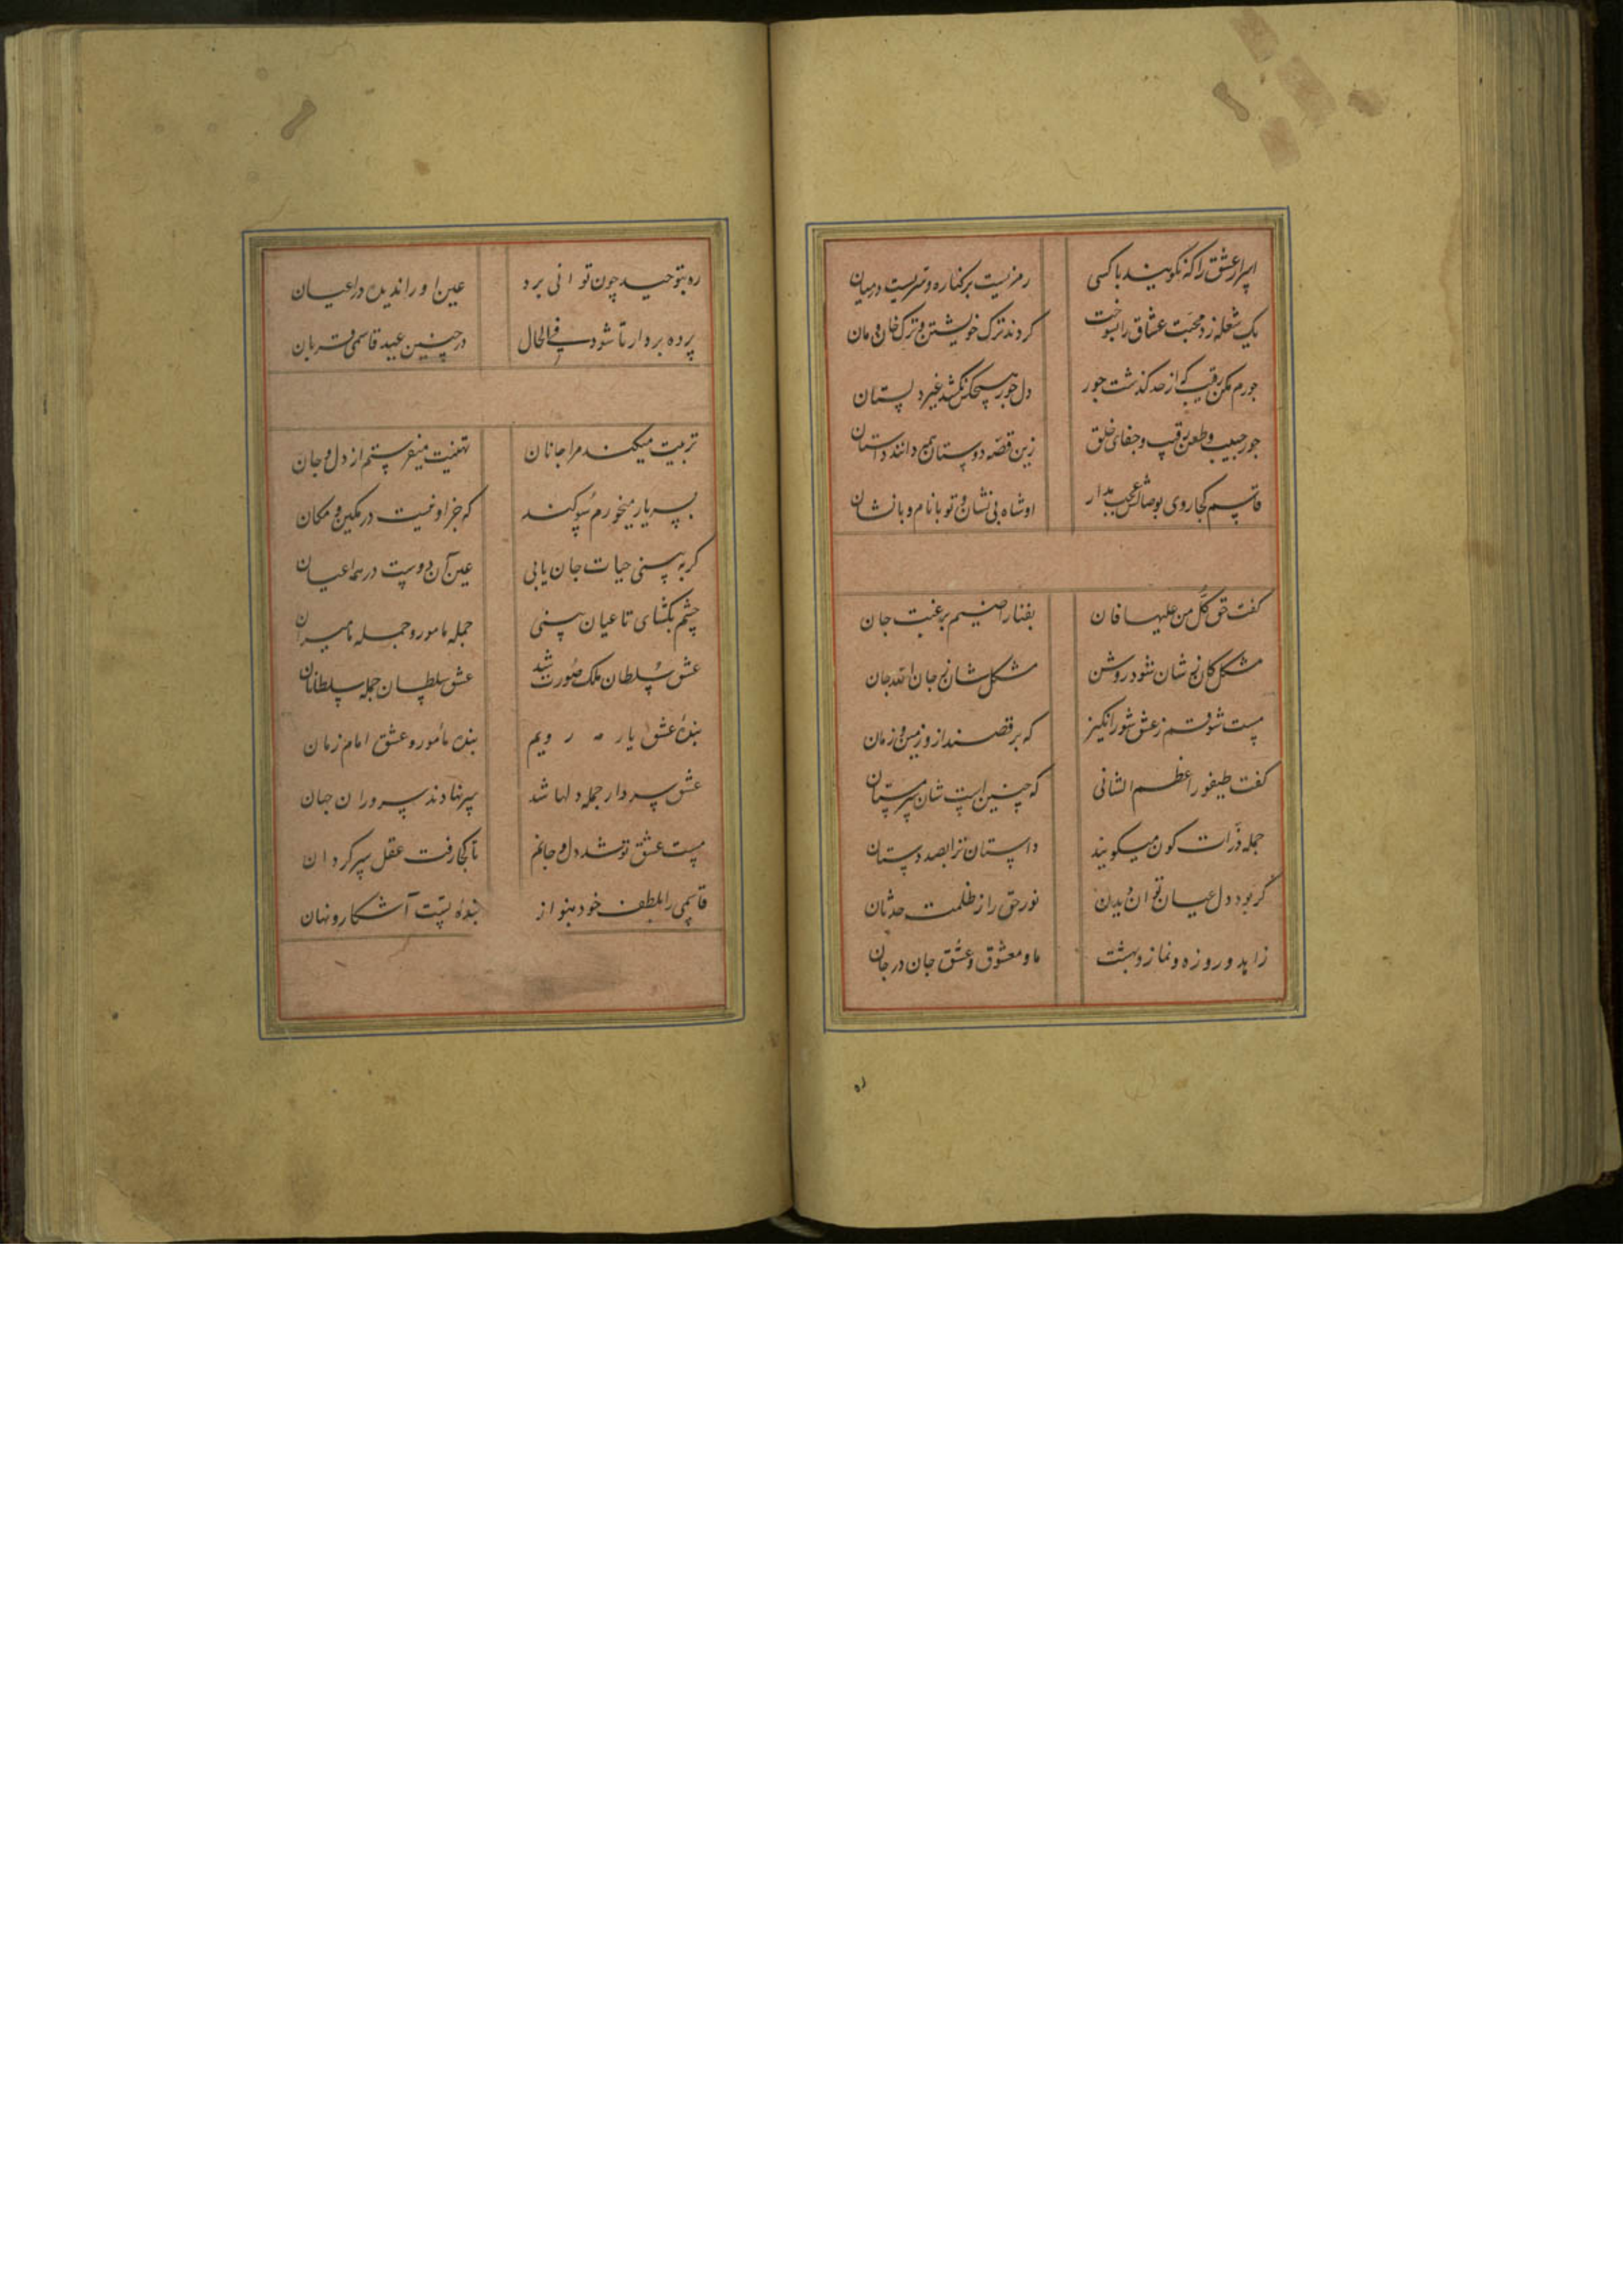 اسرار عشق را که نگویند با کسی رمزیست بر کناره و سریست در میان
یک شعله زد محبت عشاق را بسوخت کردند ترک خویشتن و ترک خان و مان
جورم مکن رقیب که از حد گذشت جور دل جور هیچکس نکشد غیر دلستان
جور حبیب و طعن رقیب و جفای خلق زین قصه دوستان همه دانند داستان
قاسم کجا روی بوصالش عجب بدار او شاه بی نشان و تو با نام و با نشان
کفت حق کل من علیها فان بفنا راضییم برغبت جان
مشکل کان نه شان شود روشن مشکل شان نه جان الله جان
مست شو قسم ز عشق شورانکیز که برقصند ازو زمین و زمان
کفت طیفور اعظم الشانی که چنین است شان سرمستان
جمله ذرات کون میکویند داستان ترا بصد دستان
کر بود دل عیان توان دیدن نور حق را ز ظلمت حدثان
زاهد و روزه و نماز و بهشت ما و معشوق و عشق جان در جان
ره
ره بتوحید چون توانی برد عین او را ندیده در اعیان
پرده بردار تا شود فی الحال در چنین عید قاسمی قربان
تربیت میکند مرا جانان تهنیت میفرستم از دل و جان
بسر یار میخورم سوکند که جز او نیست در مکین و مکان
کر به بینی حیات جان یابی عین آن دوست در همه اعیان
چشم بکشای تا عیان بینی جمله مامور و جمله مامیران
عشق سلطان ملک صورت شد عشق سلطان جمله سلطانان
بنده عشق یار مه رویم بنده مأمور و عشق امام زمان
عشق سردار جمله دلها شد سر نهادند سروران جهان
مست عشق تو شد دل و جانم تا کجا رفت عقل سرکردان
قاسمی را بلطف خود بنواز بنده تست آشکار و نهان